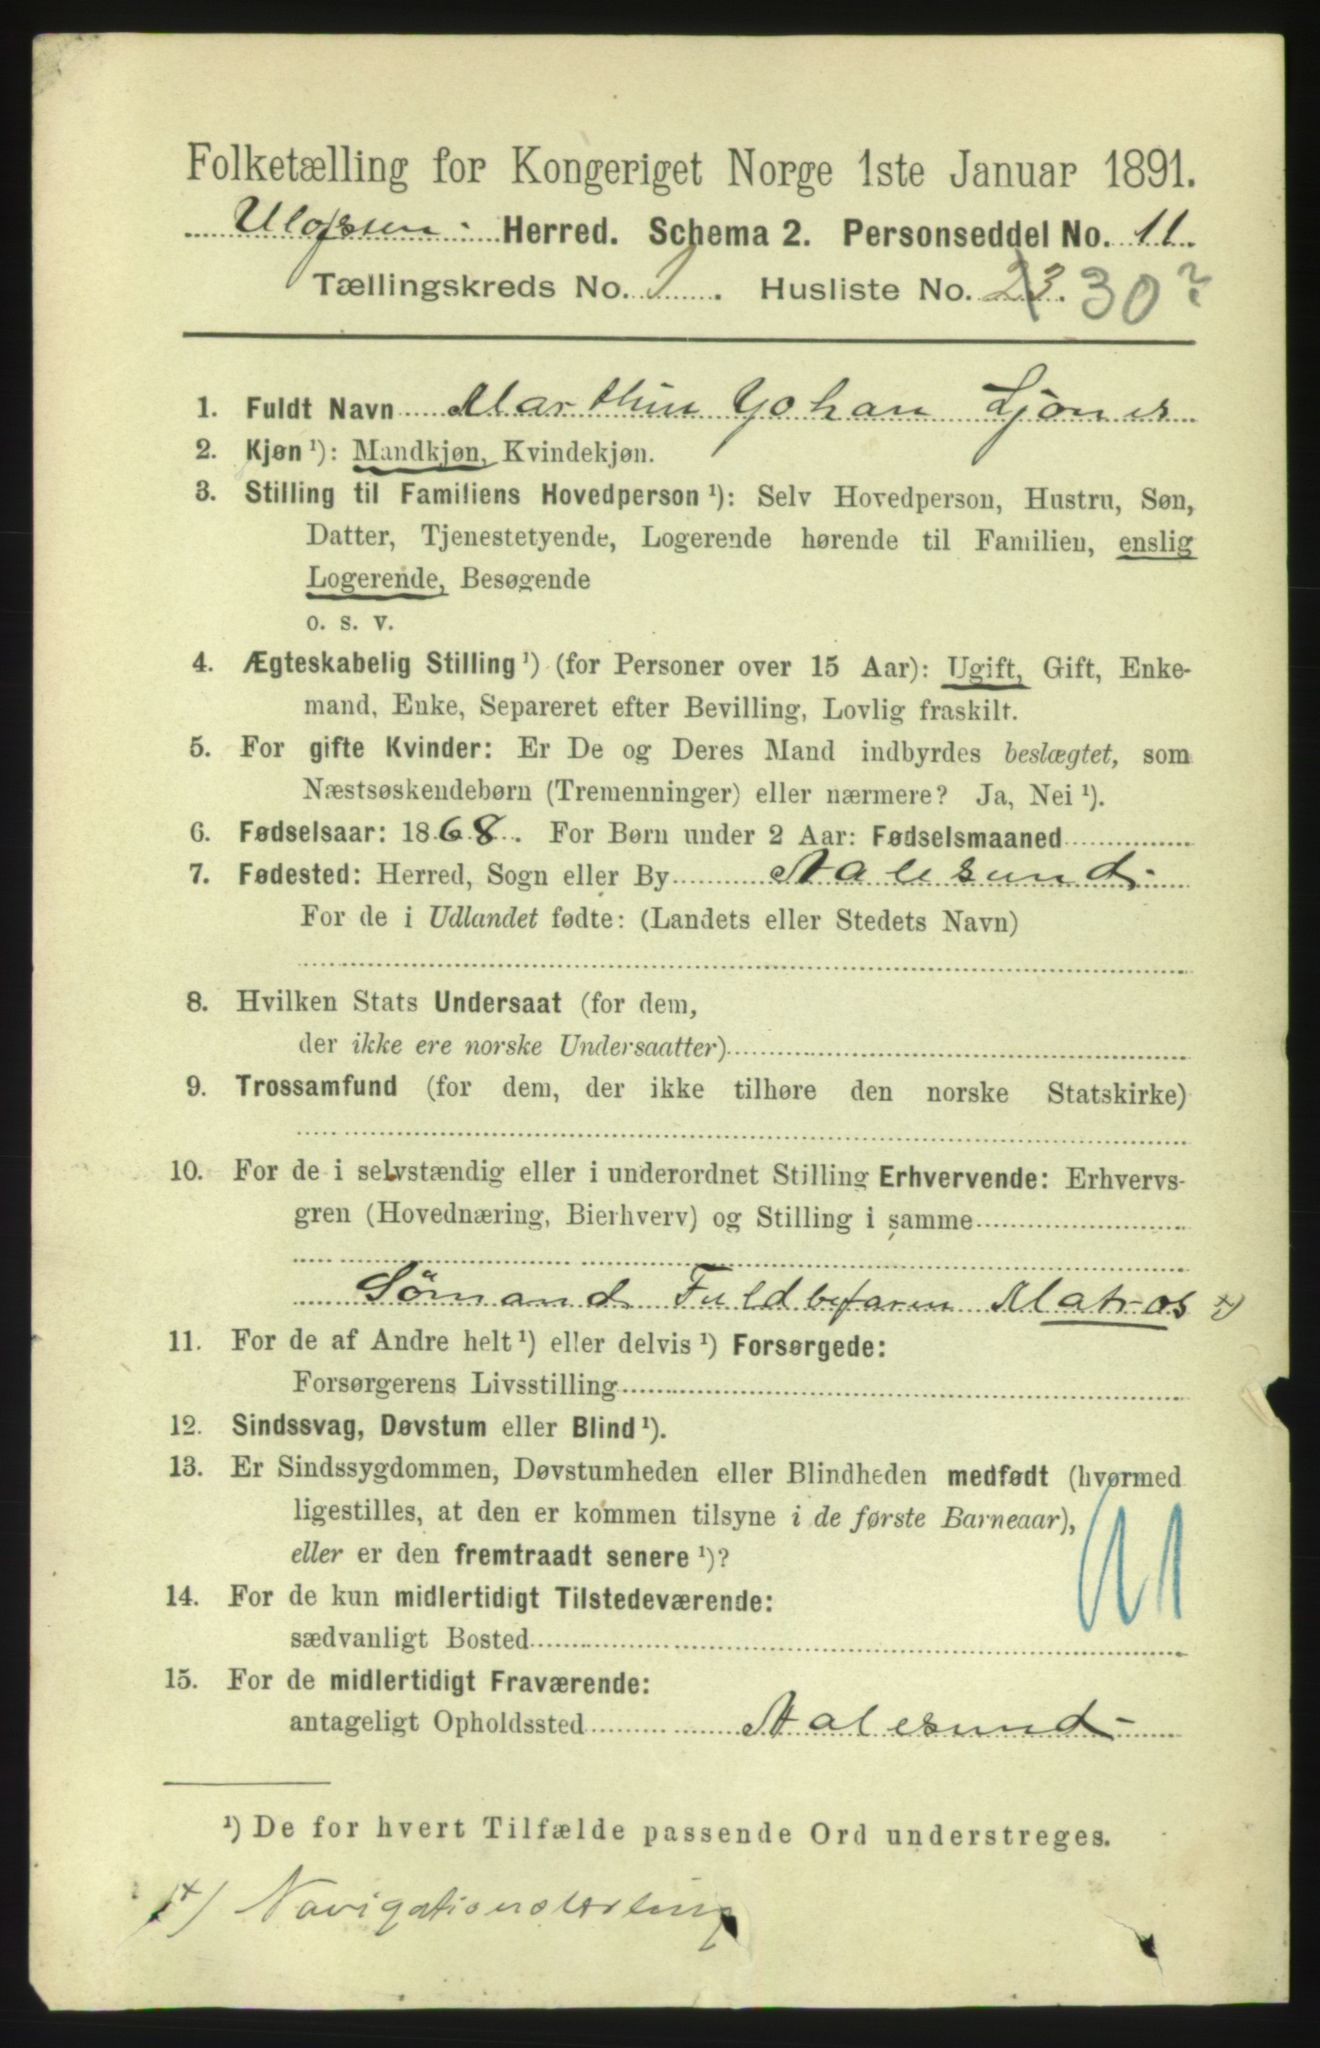 Folketælling for Kongeriget Norge 1ste Januar 1891.
Ulfsten Herred. Schema 2. Personseddel No. 11.
Tællingskreds No. 1. Husliste No. 23. 30?
1. Fuldt Navn Marthin Johan Ljønes
2. Kjøn ¹): Mandkjøn, Kvindekjøn.
3. Stilling til Familiens Hovedperson ¹): Selv Hovedperson, Hustru, Søn,
Datter, Tjenestetyende, Logerende hørende til Familien, enslig
Logerende, Besøgende
o. s. v.
4. Ægteskabelig Stilling ¹) (for Personer over 15 Aar): Ugift, Gift, Enke-
mand, Enke, Separeret efter Bevilling, Lovlig fraskilt.
5. For gifte Kvinder: Er De og Deres Mand indbyrdes beslægtet, som
Næstsøskendebørn (Tremenninger) eller nærmere? Ja, Nei ¹).
6. Fødselsaar: 1868. For Børn under 2 Aar: Fødselsmaaned
7. Fødested: Herred, Sogn eller By Aalesund
For de i Udlandet fødte: (Landets eller Stedets Navn)
8. Hvilken Stats Undersaat (for dem,
der ikke ere norske Undersaatter)
9. Trossamfund (for dem, der ikke tilhøre den norske Statskirke)
10. For de i selvstændig eller i underordnet Stilling Erhvervende: Erhvervs-
gren (Hovednæring, Bierhverv) og Stilling i samme
Sömand Fuldbefaren Matros x)
11. For de af Andre helt ¹) eller delvis ¹) Forsørgede:
Forsørgerens Livsstilling
12. Sindssvag, Døvstum eller Blind ¹).
13. Er Sindssygdommen, Døvstumheden eller Blindheden medfødt (hvormed
ligestilles, at den er kommen tilsyne i de første Barneaar),
eller er den fremtraadt senere ¹)?
14. For de kun midlertidigt Tilstedeværende:
sædvanligt Bosted
15. For de midlertidigt Fraværende:
antageligt Opholdssted Aalesund
¹) De for hvert Tilfælde passende Ord understreges.
x) Navigationslærling